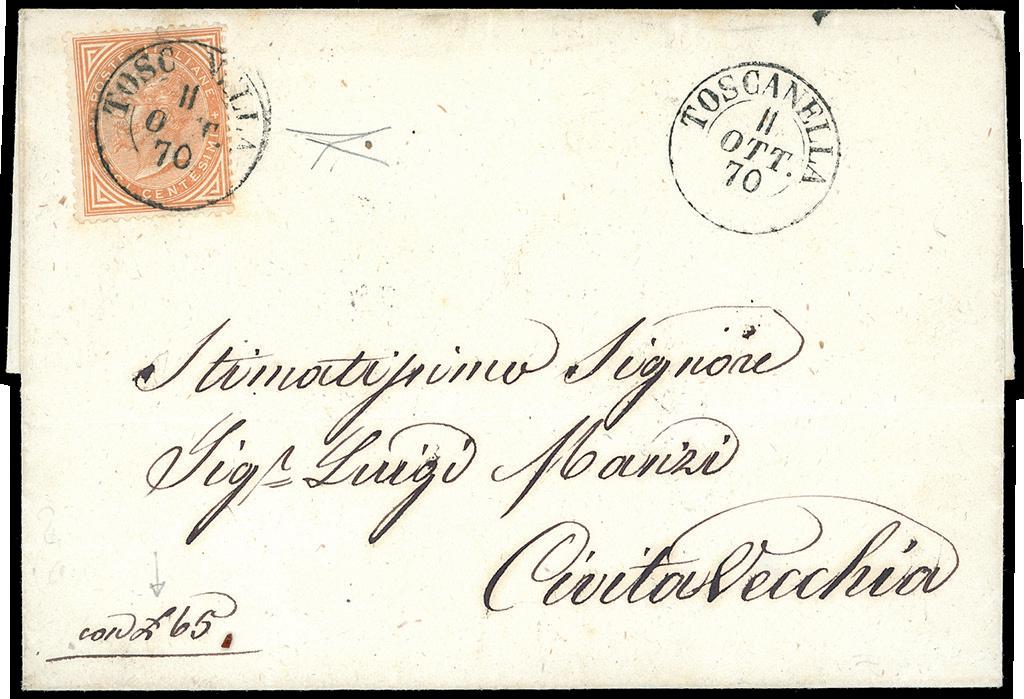 POSTE ITALIANE
CENTESIMI
TOSC ELLA
11
O T.
70
TOSCANELLA
11
OTT.
70
Stimatissimo Signore
Sigr. Luigi Manzi
CivitaVecchia
con £ 65